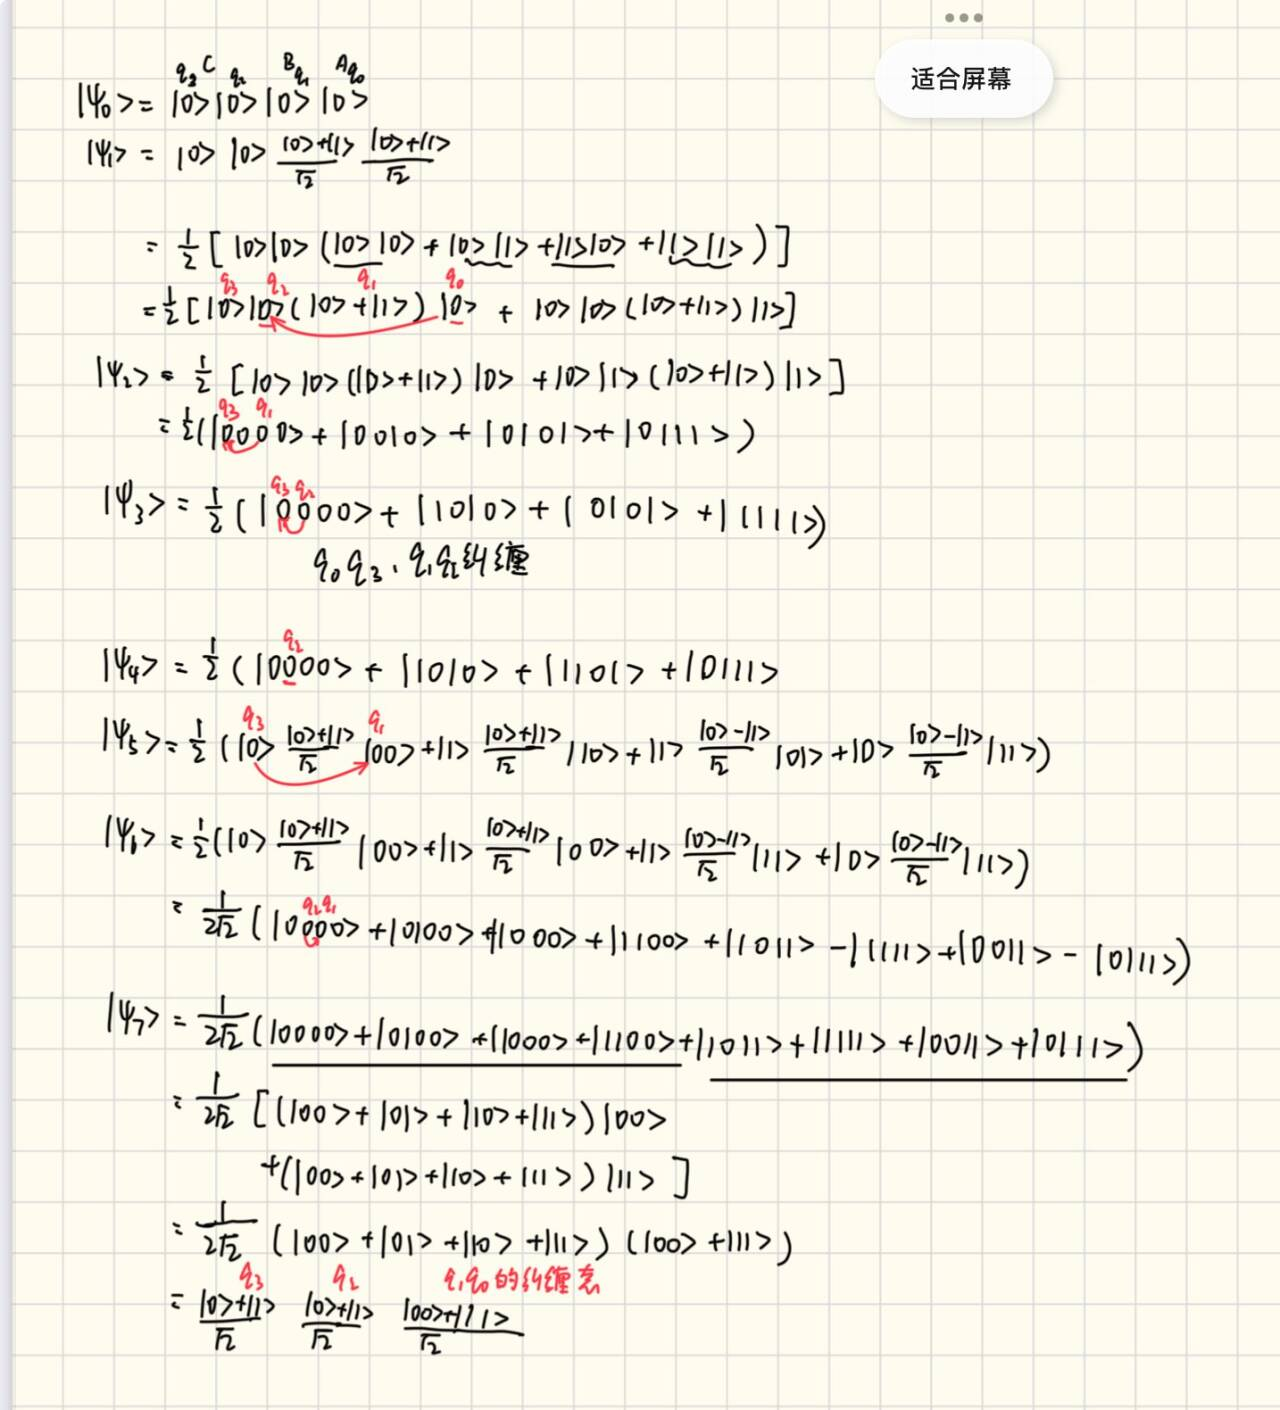 适合屏幕
q₃ C q₂ B q₁ A q₀
|ψ₀> = |0>|0>|0>|0>
|ψ₁> = |0> |0> (|0>+|1>)/√2 (|0>+|1>)/√2
= 1/2 [ |0>|0> (|0>|0> + |0>|1> + |1>|0> + |1>|1>) ]
q₃ q₂ q₁ q₀
= 1/2 [|0>|0>(|0>+|1>)|0> + |0>|0>(|0>+|1>)|1>]
|ψ₂> = 1/2 [|0>|0>(|0>+|1>)|0> + |0>|1>(|0>+|1>)|1>]
q₃ q₁
= 1/2(|0000> + |0010> + |0101> + |0111>)
q₃ q₂
|ψ₃> = 1/2 (|0000> + |1010> + |0101> + |1111>)
q₀q₃、q₁q₂纠缠
q₂
|ψ₄> = 1/2 (|0000> + |1010> + |1101> + |0111>
q₃ q₁
|ψ₅> = 1/2 (|0> (|0>+|1>)/√2 |00> + |1> (|0>+|1>)/√2 |10> + |1> (|0>-|1>)/√2 |01> + |0> (|0>-|1>)/√2 |11>)
|ψ₆> = 1/2(|0> (|0>+|1>)/√2 |00> + |1> (|0>+|1>)/√2 |00> + |1> (|0>-|1>)/√2 |11> + |0> (|0>-|1>)/√2 |11>)
q₂q₁
= 1/2√2 (|0000> + |0100> + |1000> + |1100> + |1011> - |1111> + |0011> - |0111>)
|ψ₇> = 1/2√2 (|0000> + |0100> + |1000> + |1100> + |1011> + |1111> + |0011> + |0111>)
= 1/2√2 [(|00> + |01> + |10> + |11>)|00>
+(|00> + |01> + |10> + |11>)|11>]
= 1/2√2 (|00> + |01> + |10> + |11>) (|00> + |11>)
q₃ q₂ q₁q₀的纠缠态
= (|0>+|1>)/√2 (|0>+|1>)/√2 (|00>+|11>)/√2